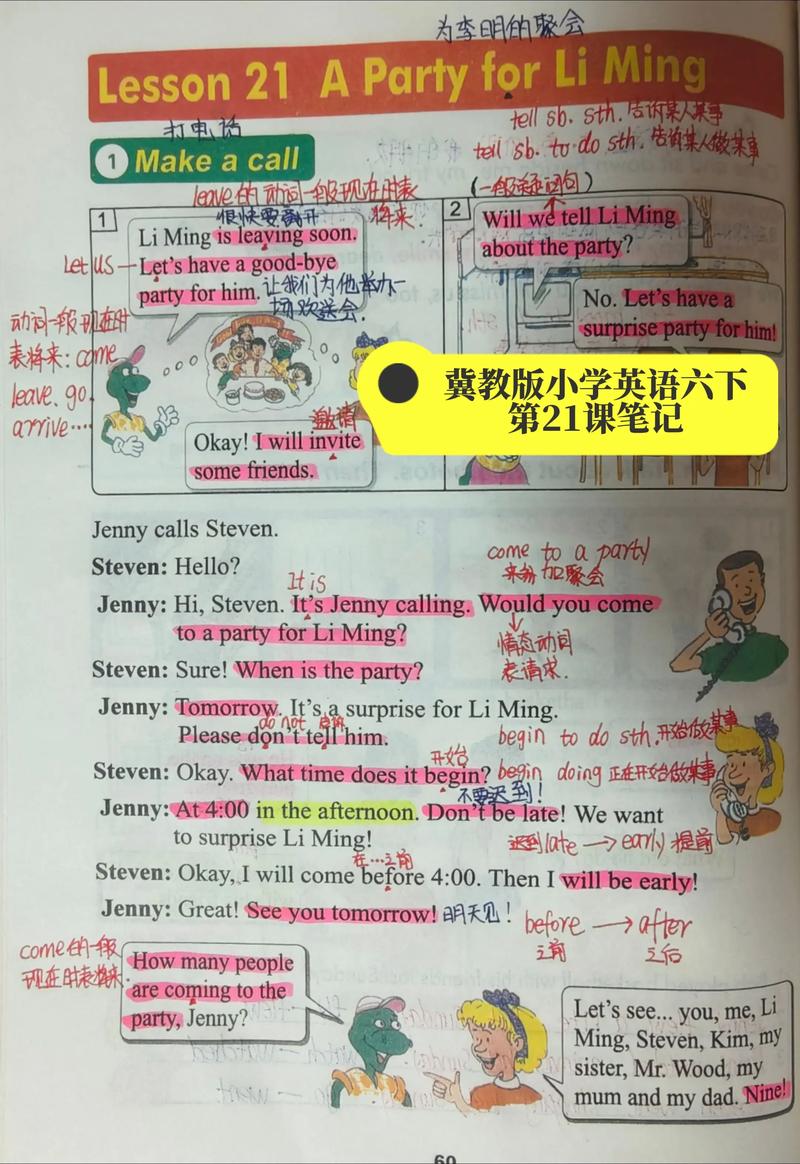 为李明的聚会
Lesson 21 A Party for Li Ming
打电话
tell sb. sth. 告诉某人某事
1 Make a call
tell sb. to do sth. 告诉某人做某事
leave的动词一般现在时表
将来.
(一般疑问句)
1
很快要离开
Li Ming is leaving soon.
Let us
Let's have a good-bye
party for him.
让我们为他举办一
场欢送会.
动词一般现在时
表将来: come
leave. go.
arrive····
邀请
Okay! I will invite
some friends.
2
Will we tell Li Ming
about the party?
No. Let's have a
surprise party for him!
冀教版小学英语六下
第21课笔记
Jenny calls Steven.
Steven: Hello?
come to a party
来参加聚会
It is
Jenny: Hi, Steven. It's Jenny calling. Would you come
to a party for Li Ming?
情态动词
表请求.
Steven: Sure! When is the party?
Jenny: Tomorrow. It's a surprise for Li Ming.
do not 告诉
Please don't tell him.
begin to do sth. 开始做某事
开始
Steven: Okay. What time does it begin?
begin doing 正在开始做某事
不要迟到!
Jenny: At 4:00 in the afternoon. Don't be late! We want
to surprise Li Ming!
迟到late → early 提前
在…之前
Steven: Okay, I will come before 4:00. Then I will be early!
Jenny: Great! See you tomorrow! 明天见!
before → after
之前 之后
come的一般
现在时表将来.
How many people
are coming to the
party, Jenny?
Let's see... you, me, Li
Ming, Steven, Kim, my
sister, Mr. Wood, my
mum and my dad. Nine!
60